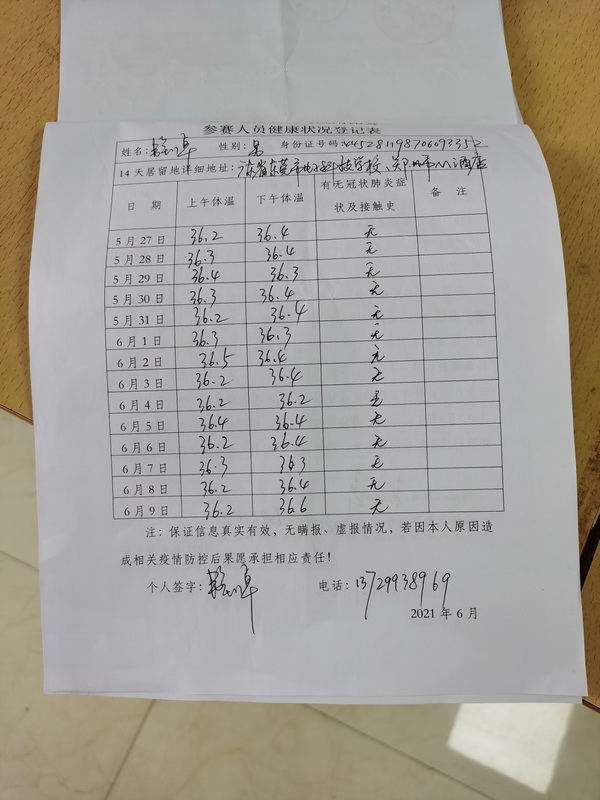 参赛人员健康状况登记表
姓名: 性别:男 身份证号码:
14天居留地详细地址:广东省东莞市电子科技学校、郑州市 酒店
日 期 上午体温 下午体温 有无冠状肺炎症状及接触史 备 注
5月27日 36.2 36.4 无
5月28日 36.3 36.4 无
5月29日 36.4 36.3 无
5月30日 36.3 36.4 无
5月31日 36.2 36.4 无
6月1日 36.3 36.3 无
6月2日 36.5 36.4 无
6月3日 36.2 36.4 无
6月4日 36.2 36.2 无
6月5日 36.4 36.4 无
6月6日 36.2 36.4 无
6月7日 36.3 36.3 无
6月8日 36.2 36.4 无
6月9日 36.2 36.6 无
注:保证信息真实有效,无瞒报、虚报情况,若因本人原因造
成相关疫情防控后果愿承担相应责任!
个人签字: 电话:13729938969
2021年6月